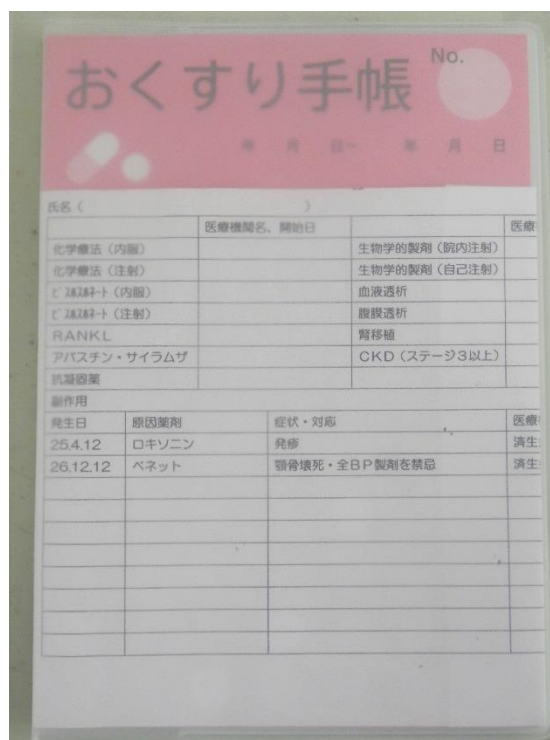 おくすり手帳 No.
年 月 日〜 年 月 日
氏名（ ）
医療機関名、開始日 医療
化学療法（内服） 生物学的製剤（院内注射）
化学療法（注射） 生物学的製剤（自己注射）
ﾋﾞｽﾎｽﾎﾈｰﾄ（内服） 血液透析
ﾋﾞｽﾎｽﾎﾈｰﾄ（注射） 腹膜透析
RANKL 腎移植
アバスチン・サイラムザ CKD（ステージ3以上）
抗凝固薬
副作用
発生日 原因薬剤 症状・対応 医療
25.4.12 ロキソニン 発疹 済生
26.12.12 ベネット 顎骨壊死・全BP製剤を禁忌 済生